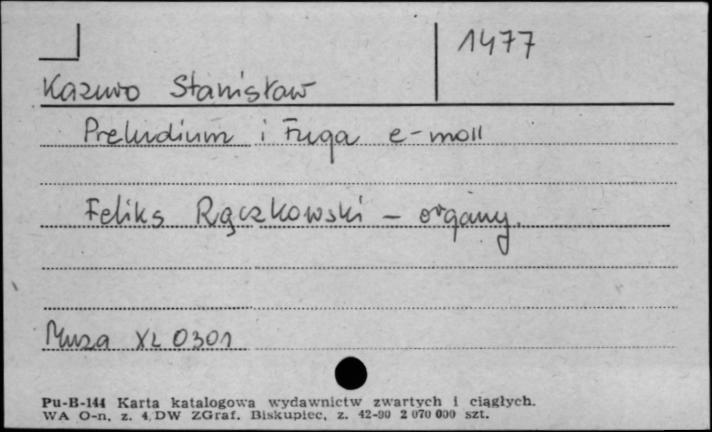 1477
Kazuro Stanisław
Preludium i Fuga e-moll
Feliks Rączkowski - organy.
Muza XL 0301
Pu-B-144 Karta katalogowa wydawnictw zwartych i ciągłych.
WA O-n, z. 4, DW ZGraf. Biskupiec, z. 42-90 2 070 000 szt.